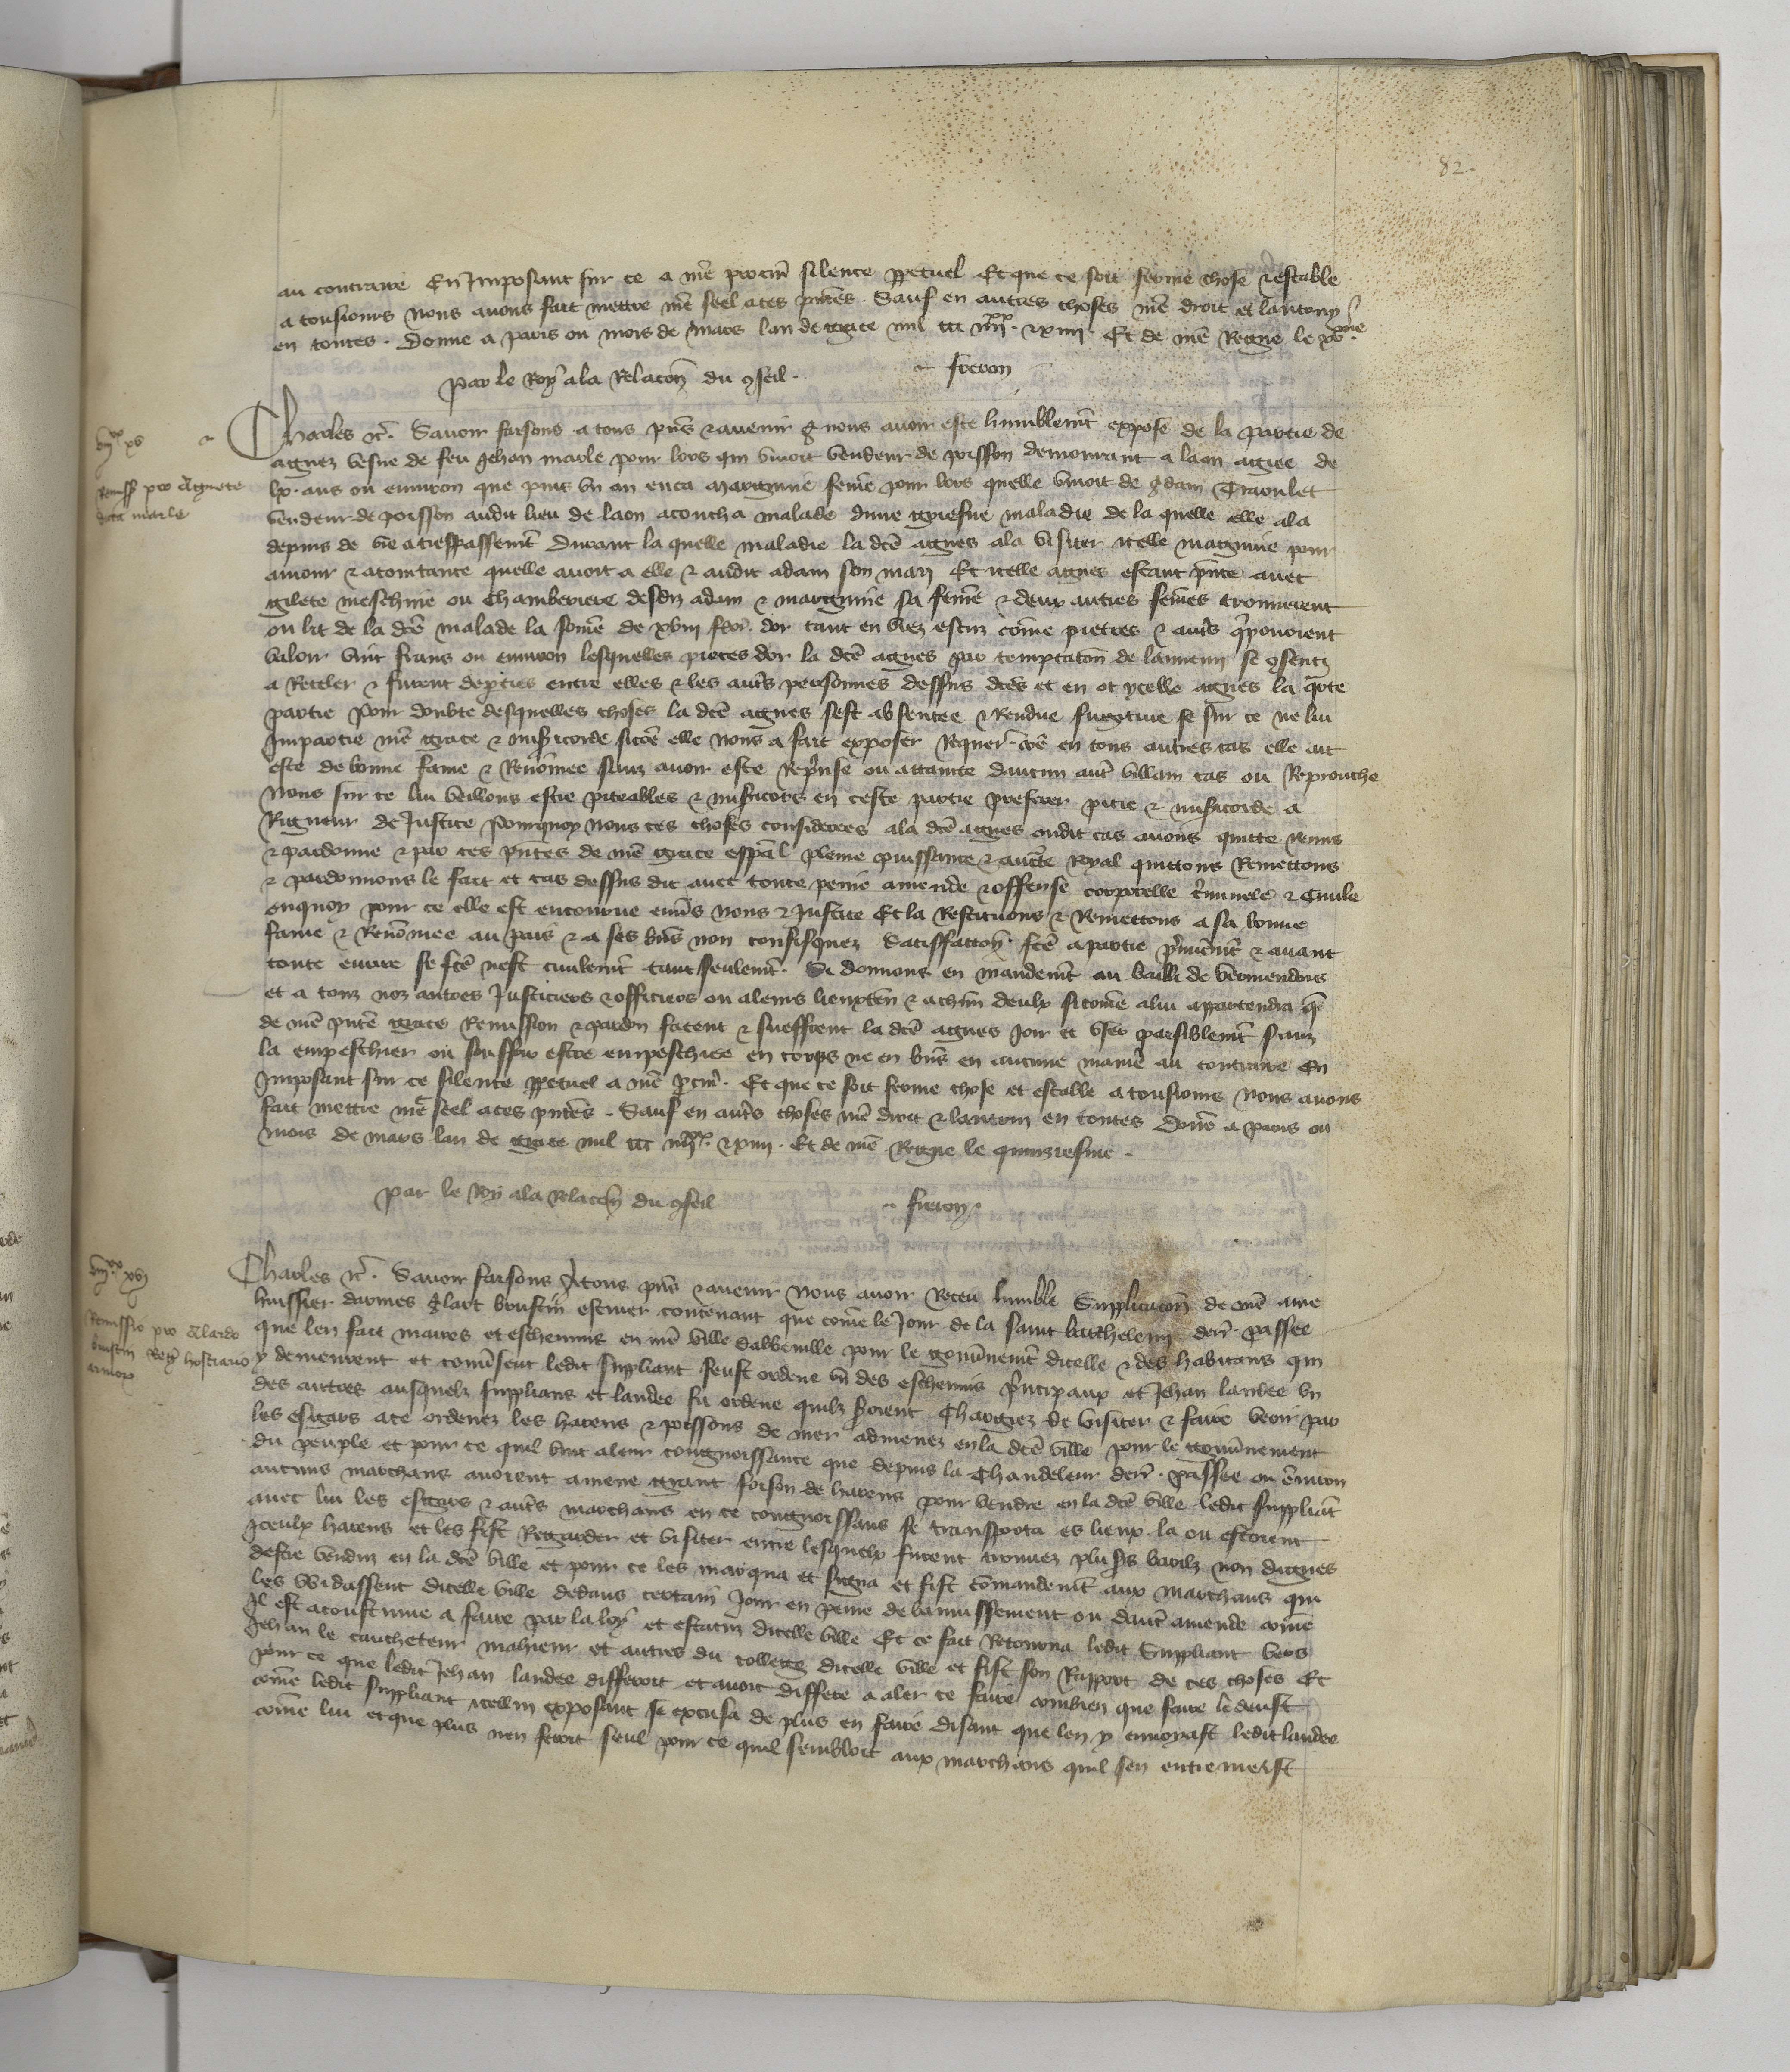 82.
au contraire En Imposant sur ce a nre̅ procur̅ silence ppetuel Et que ce soit ferme chose & estable
a tousiours nous auons fait mettre nr̅e seel a ces pn̅tes. Sauf en autres choses nr̅e droit et lautruy
en toutes. Donne a paris ou mois de mars lan de grace mil ccc iiiixx. & xiiii. Et de nr̅e Regne le xve.
par le Roy a la Relacon̅ du 9seil. freron
iiiixx xv
Remiss pro Agnete
dicta marle
Charles &c̅. Sauoir faisons a tous pn̅s & auenir q̅ nous auoir este humblem̅t expose de la partie de
agnez vesue de feu Jehan marle pour lors qui viuoit vendeur de poisson demourant a laon agiee de
lx. ans ou enuiron que puis vn an enca margurie feme̅ pour lors quelle viuoit de adam Traoulet
vendeur de poisson audit lieu de laon acoucha malade dune griefue maladie de la quelle elle ala
depuis de vie a trespassem̅t Durant la quelle maladie la dce̅ agnes ala visiter icelle margurie pour
amour & acointance quelle auoit a elle & audit adam son mary Et icelle agnes estant pn̅te auec
gilete meschine ou Chamberiere desdiz adam & margurie sa feme̅ & deux autres feme̅s trouuerent
ou lit de la dce̅ malade la some̅ de xviii flor̅. dor tant en viez escuz come̅ pieces & aut̅s q̅ pouoient
valoir vint frans ou enuiron lesquelles pieces dor la dce̅ agnes par temptacon̅ de lannemi se 9senti
a Receler & furent depties entre elles & les aut̅s personnes dessus dce̅s et en ot ycelle agnes la q̅rte
partie Pour doubte desquelles choses la dce̅ agnes sest absentee & Rendue fugitiue se sur ce ne lui
Impartie nr̅e grace & misericorde sicoe̅ elle nous a fait exposer Requer̅. coe̅ en tous autres cas elle ait
este de bonne fame & Renomee sanz auoir este Reprinse ou attainte daucun aut̅ villain cas ou Reprouche
Nous sur ce lui veillons estre piteables & misericors en ceste partie preferer pitie & misericorde a
Rigueur de Justice Pourquoy nous ces choses considerees a la dce̅ agnes oudit cas auons quitte Remis
& pardonne & par ces pn̅tes de nr̅e grace esp̅al pleine puissance & aucte̅ Royal quittons Remettons
& pardonnons le fait et cas dessus dit auec toute peine amende & offense corporelle c̅minele & Ciuile
enquoy pour ce elle est encourue enu̅s nous & Justice Et la Restituons & Remettons a sa bonne
fame & Renommee au pais & a ses bn̅s non confisquez Satisfaccon̅. fce̅ a partie p̅mierem̅t & auant
toute euure se fce̅ nest ciuilem̅t tant seulem̅t. Si donnons en mandem̅t au bailli de vermendois
et a touz noz autres Justiciers & officiers ou a leurs lieuxten̅ & a chun̅ deulx si come̅ a lui appartendra q̅
de nr̅e pn̅te grace Remission & pardon facent & sueffrent la dce̅ agnes Joir et vser paisiblem̅t sanz
la empeschier ou souffrir estre empeschiee en corps ne en bn̅s en aucune manie̅ au contraire En
Imposant sur ce silence ppetuel a nr̅e pcur̅. Et que ce soit ferme chose et estable a tousiours Nous auons
fait mettre nr̅e seel a ces pn̅tes. Sauf en aut̅s choses nr̅e droit & lautrui en toutes Donne̅ a paris ou
mois de mars lan de grace mil ccc iiiixx. & xiiii. Et de nr̅e Regne le quinziesme.
par le Roy a la Relacon̅ du 9seil freron.
iiiixx xvj
Remissio pro Alardo
Broustin Regis hostiario
armor̅
Charles &c̅. Sauoir faisons A tous pn̅s & auenir Nous auoir Receu humble Supplicacon̅ de nr̅e ame
huissier darmes Alart broustin̅ escuier contenant que come̅ le Jour de la saint barthelemi derr̅. passee
que len fait maires et escheuins en nr̅e ville dabbeuille pour le gouu̅nem̅t dicelle & des habitans qui
y demeurent et conu̅sent ledit suppliant feust ordene vn̅ des escheuins p̅ncipaux et Jehan landee vn
des autres ausquelz supplians et landee fu ordene quilz s̅oient Chargiez de visiter & faire veoir par
les esgars a ce ordenez les harens & poissons de mer admenez en la dce̅ ville pour le gouu̅nement
du peuple et pour ce quil vint a leur congnoissance que depuis la Chandeleur derr̅. passee ou en̅uiron
aucuns marchans auoient amene grant foison de harens pour vendre en la dce̅ ville ledit suppliant
auec lui les esgars & aut̅s marchans en ce congnoissans se transporta es lieux la ou estoient
Iceulx harens et les fist Regarder et visiter entre lesquelx furent trouuez plusrs̅ barilz non dignes
destre venduz en la dce̅ ville et pour ce les marqua et signa et fist comandem̅t aux marchans qui
les widassent dicelle ville dedans certain Jour en peine de bannissement ou daut̅ amende come̅
Il est acoustume a faire par la loy et estatuz dicelle ville Et ce fait Retourna ledit Suppliant vers
Jehan le caucheteur mahieur et autres du college dicelle ville et fist son Rapport de ces choses Et
pour ce que ledit Jehan landee differoit et auoit differe a aler ce faire combien que faire le deust
come̅ ledit suppliant icellui exposant se excusa de plus en faire disant que len y enuoyast ledit landee
come̅ lui et que plus nen feroit seul pour ce quil sembloit aux marchans quil sen entremeist